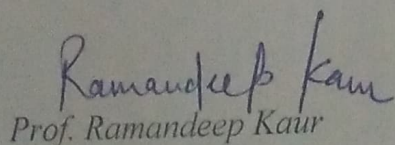 Ramandeep Kaur
Prof. Ramandeep Kaur